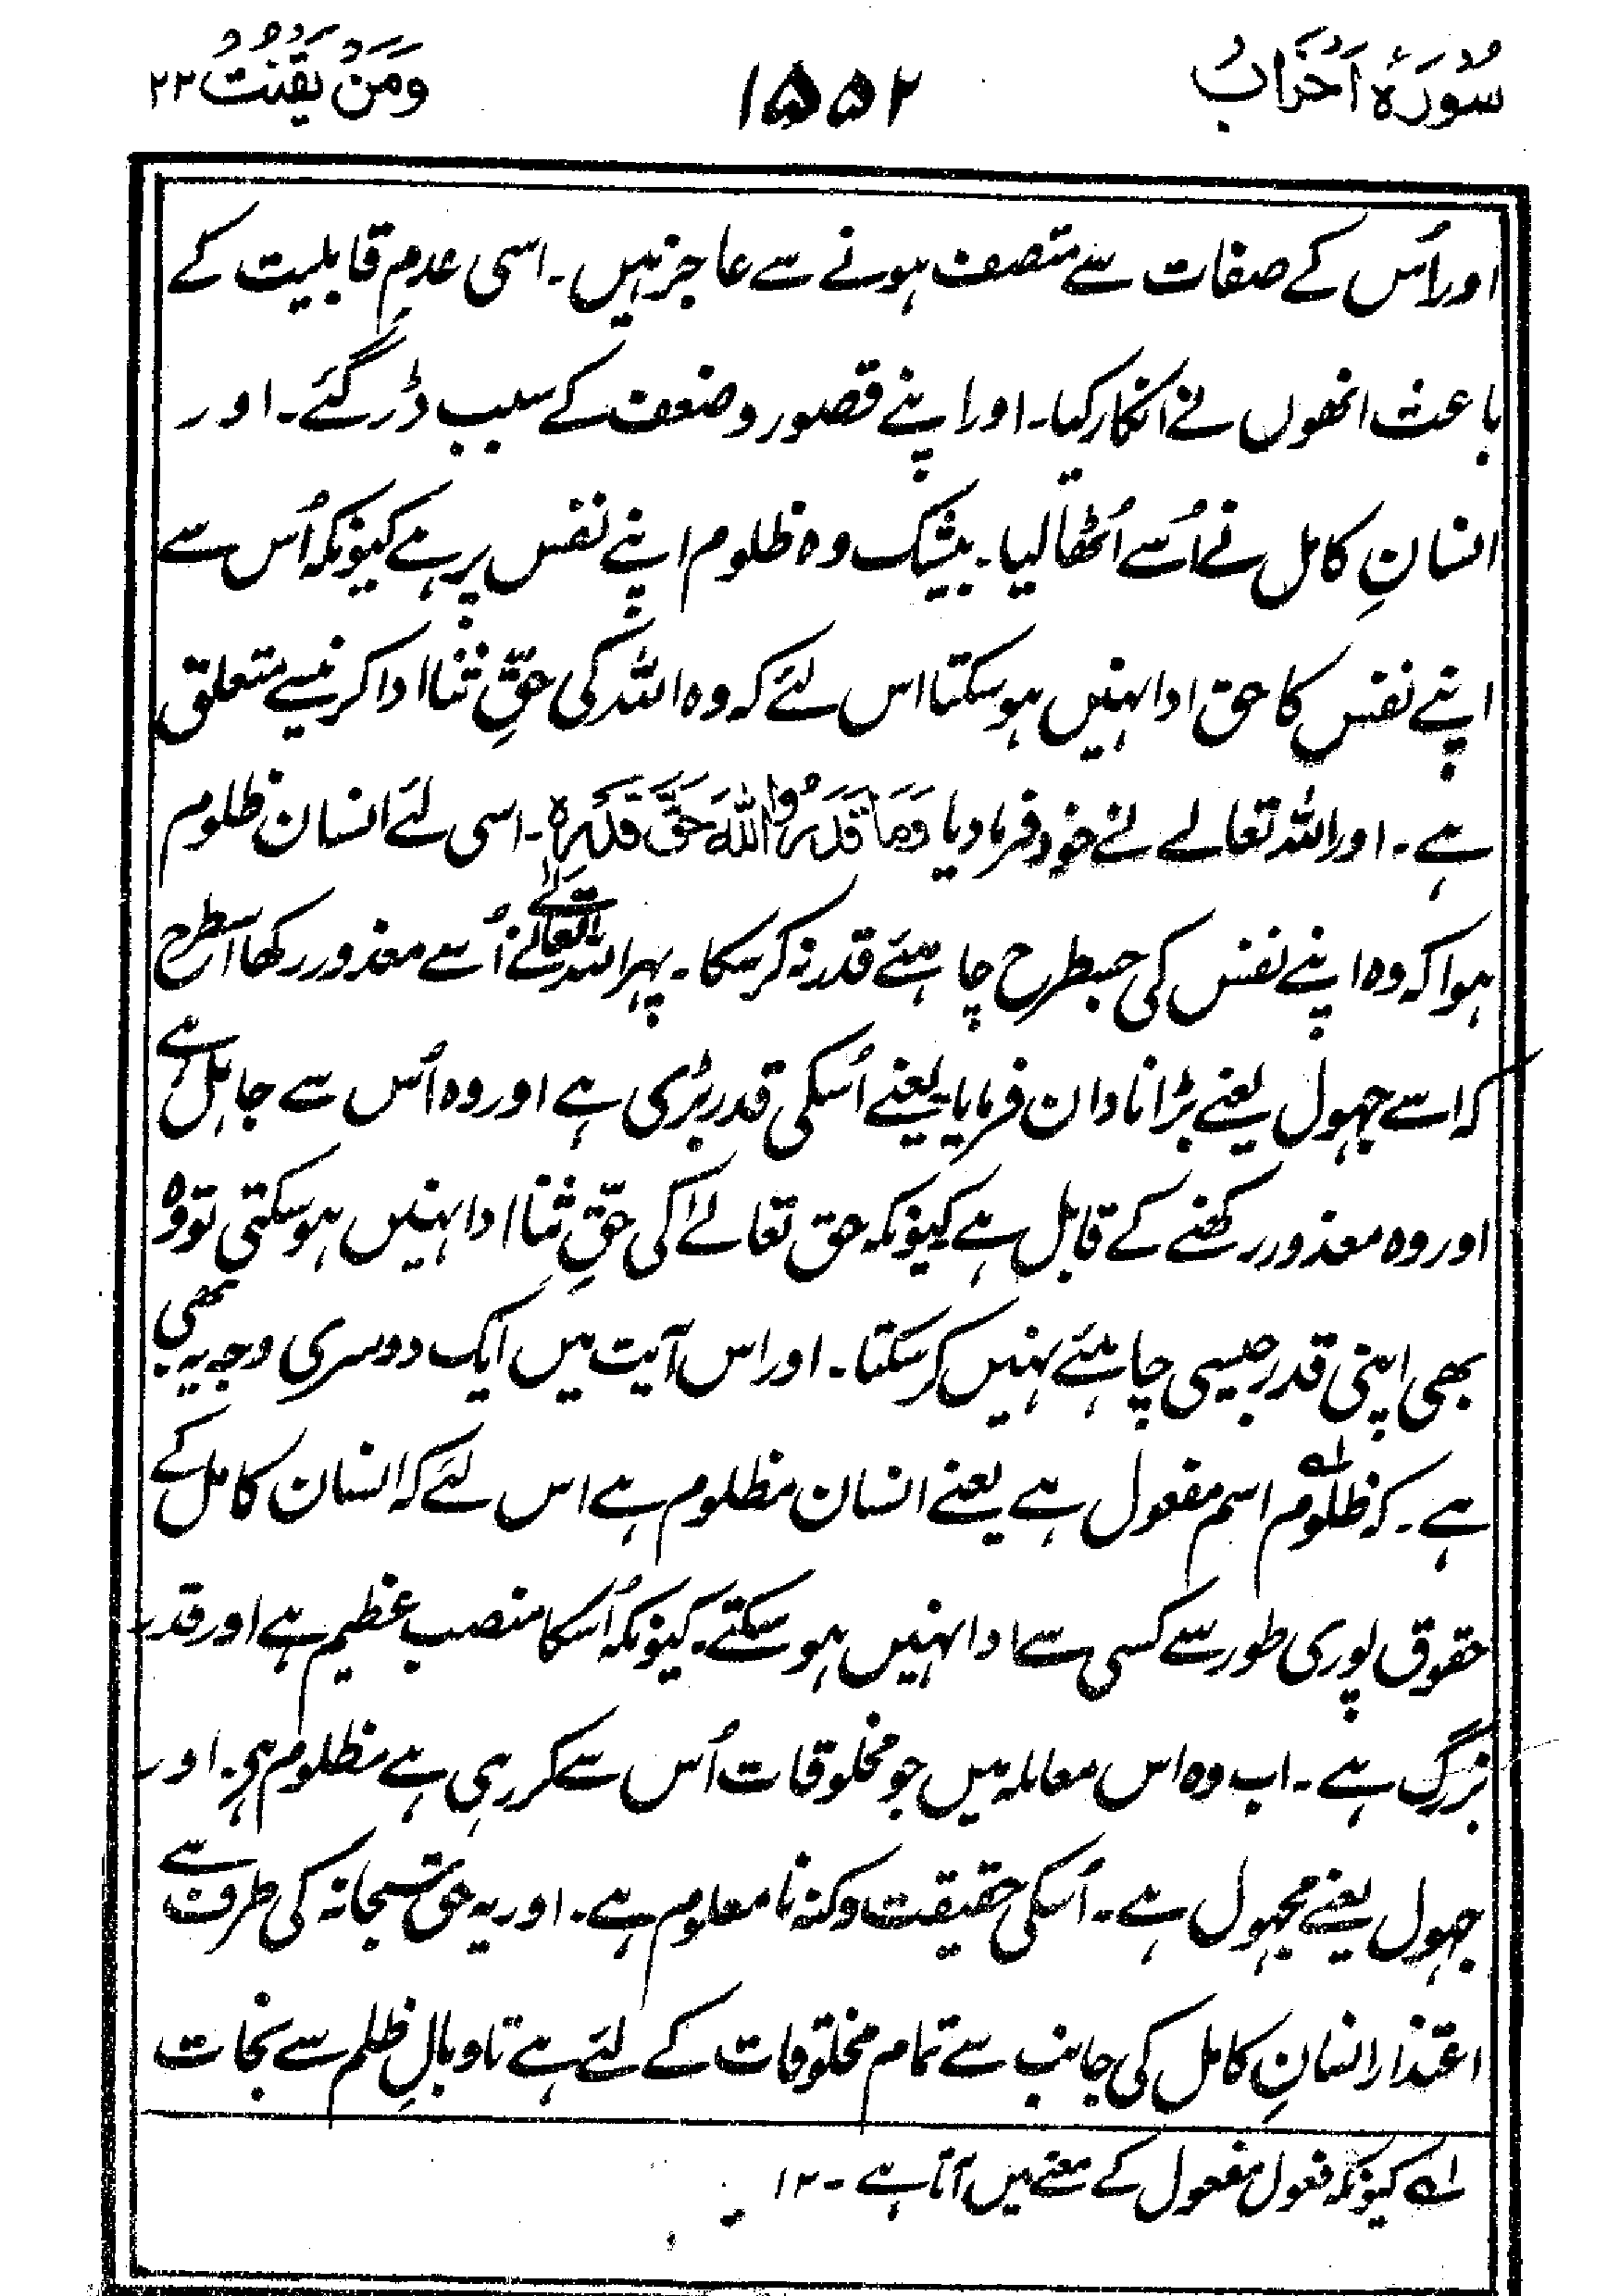 سُوْرَۂ اَحْزَابْ ۱۵۵۲ وَمَنْ يَقْنُتْ ۲۲
اور اُس کے صفات سے متصف ہونے سے عاجز ہیں۔ اسی عدم قابلیت کے
باعث انھوں نے انکار کیا۔ اور اپنے قصور وضعف کے سبب ڈر گئے۔ اور
انسانِ کامل نے اُسے اُٹھا لیا۔ بیشک وہ ظلوم اپنے نفس پر ہے کیونکہ اُس سے
اپنے نفس کا حق ادا نہیں ہو سکتا اس لئے کہ وہ اللہ کی حقِّ ثنا ادا کرنیسے متعلق
ہے۔ اور اللہ تعالے نے خود فرما دیا وَمَا قَدَرُوا اللّٰهَ حَقَّ قَدْرِهٖ۔ اسی لئے انسان ظلوم
ہوا کہ وہ اپنے نفس کی جسطرح چاہئے قدر نہ کر سکا۔ پہر اللہ تعالےٰ نے اُسے معذور رکھا اسطرح
کہ اسے جہول یعنے بڑا نادان فرمایا یعنے اُسکی قدر بڑی ہے اور وہ اُس سے جاہل ہے
اور وہ معذور رکھنے کے قابل ہے کیونکہ حق تعالےٰ کی حقِّ ثنا ادا نہیں ہو سکتی تو وہ
بھی اپنی قدر جیسی چاہئے نہیں کر سکتا۔ اور اس آیت میں ایک دوسری وجہ یہ بھی
ہے۔ کہ ظلوم ؎۱ اسم مفعول ہے یعنے انسان مظلوم ہے اس لئے کہ انسان کامل کے
حقوق پوری طور سے کسی سے ادا نہیں ہو سکتے۔ کیونکہ اُسکا منصب عظیم ہے اور قدر
بزرگ ہے۔ اب وہ اس معاملہ میں جو مخلوقات اُس سے کر رہی ہے مظلوم ہی۔ اور
جہول یعنے مجہول ہے۔ اُسکی حقیقت وکنہ نامعلوم ہے۔ اور یہ حق سبحانہ کی طرف سے
اعتذار انسانِ کامل کی جانب سے تمام مخلوقات کے لئے ہے تا وبالِ ظلم سے نجات
؎۱ کیونکہ فعول مفعول کے معنے میں آتا ہے ۔ ۱۲